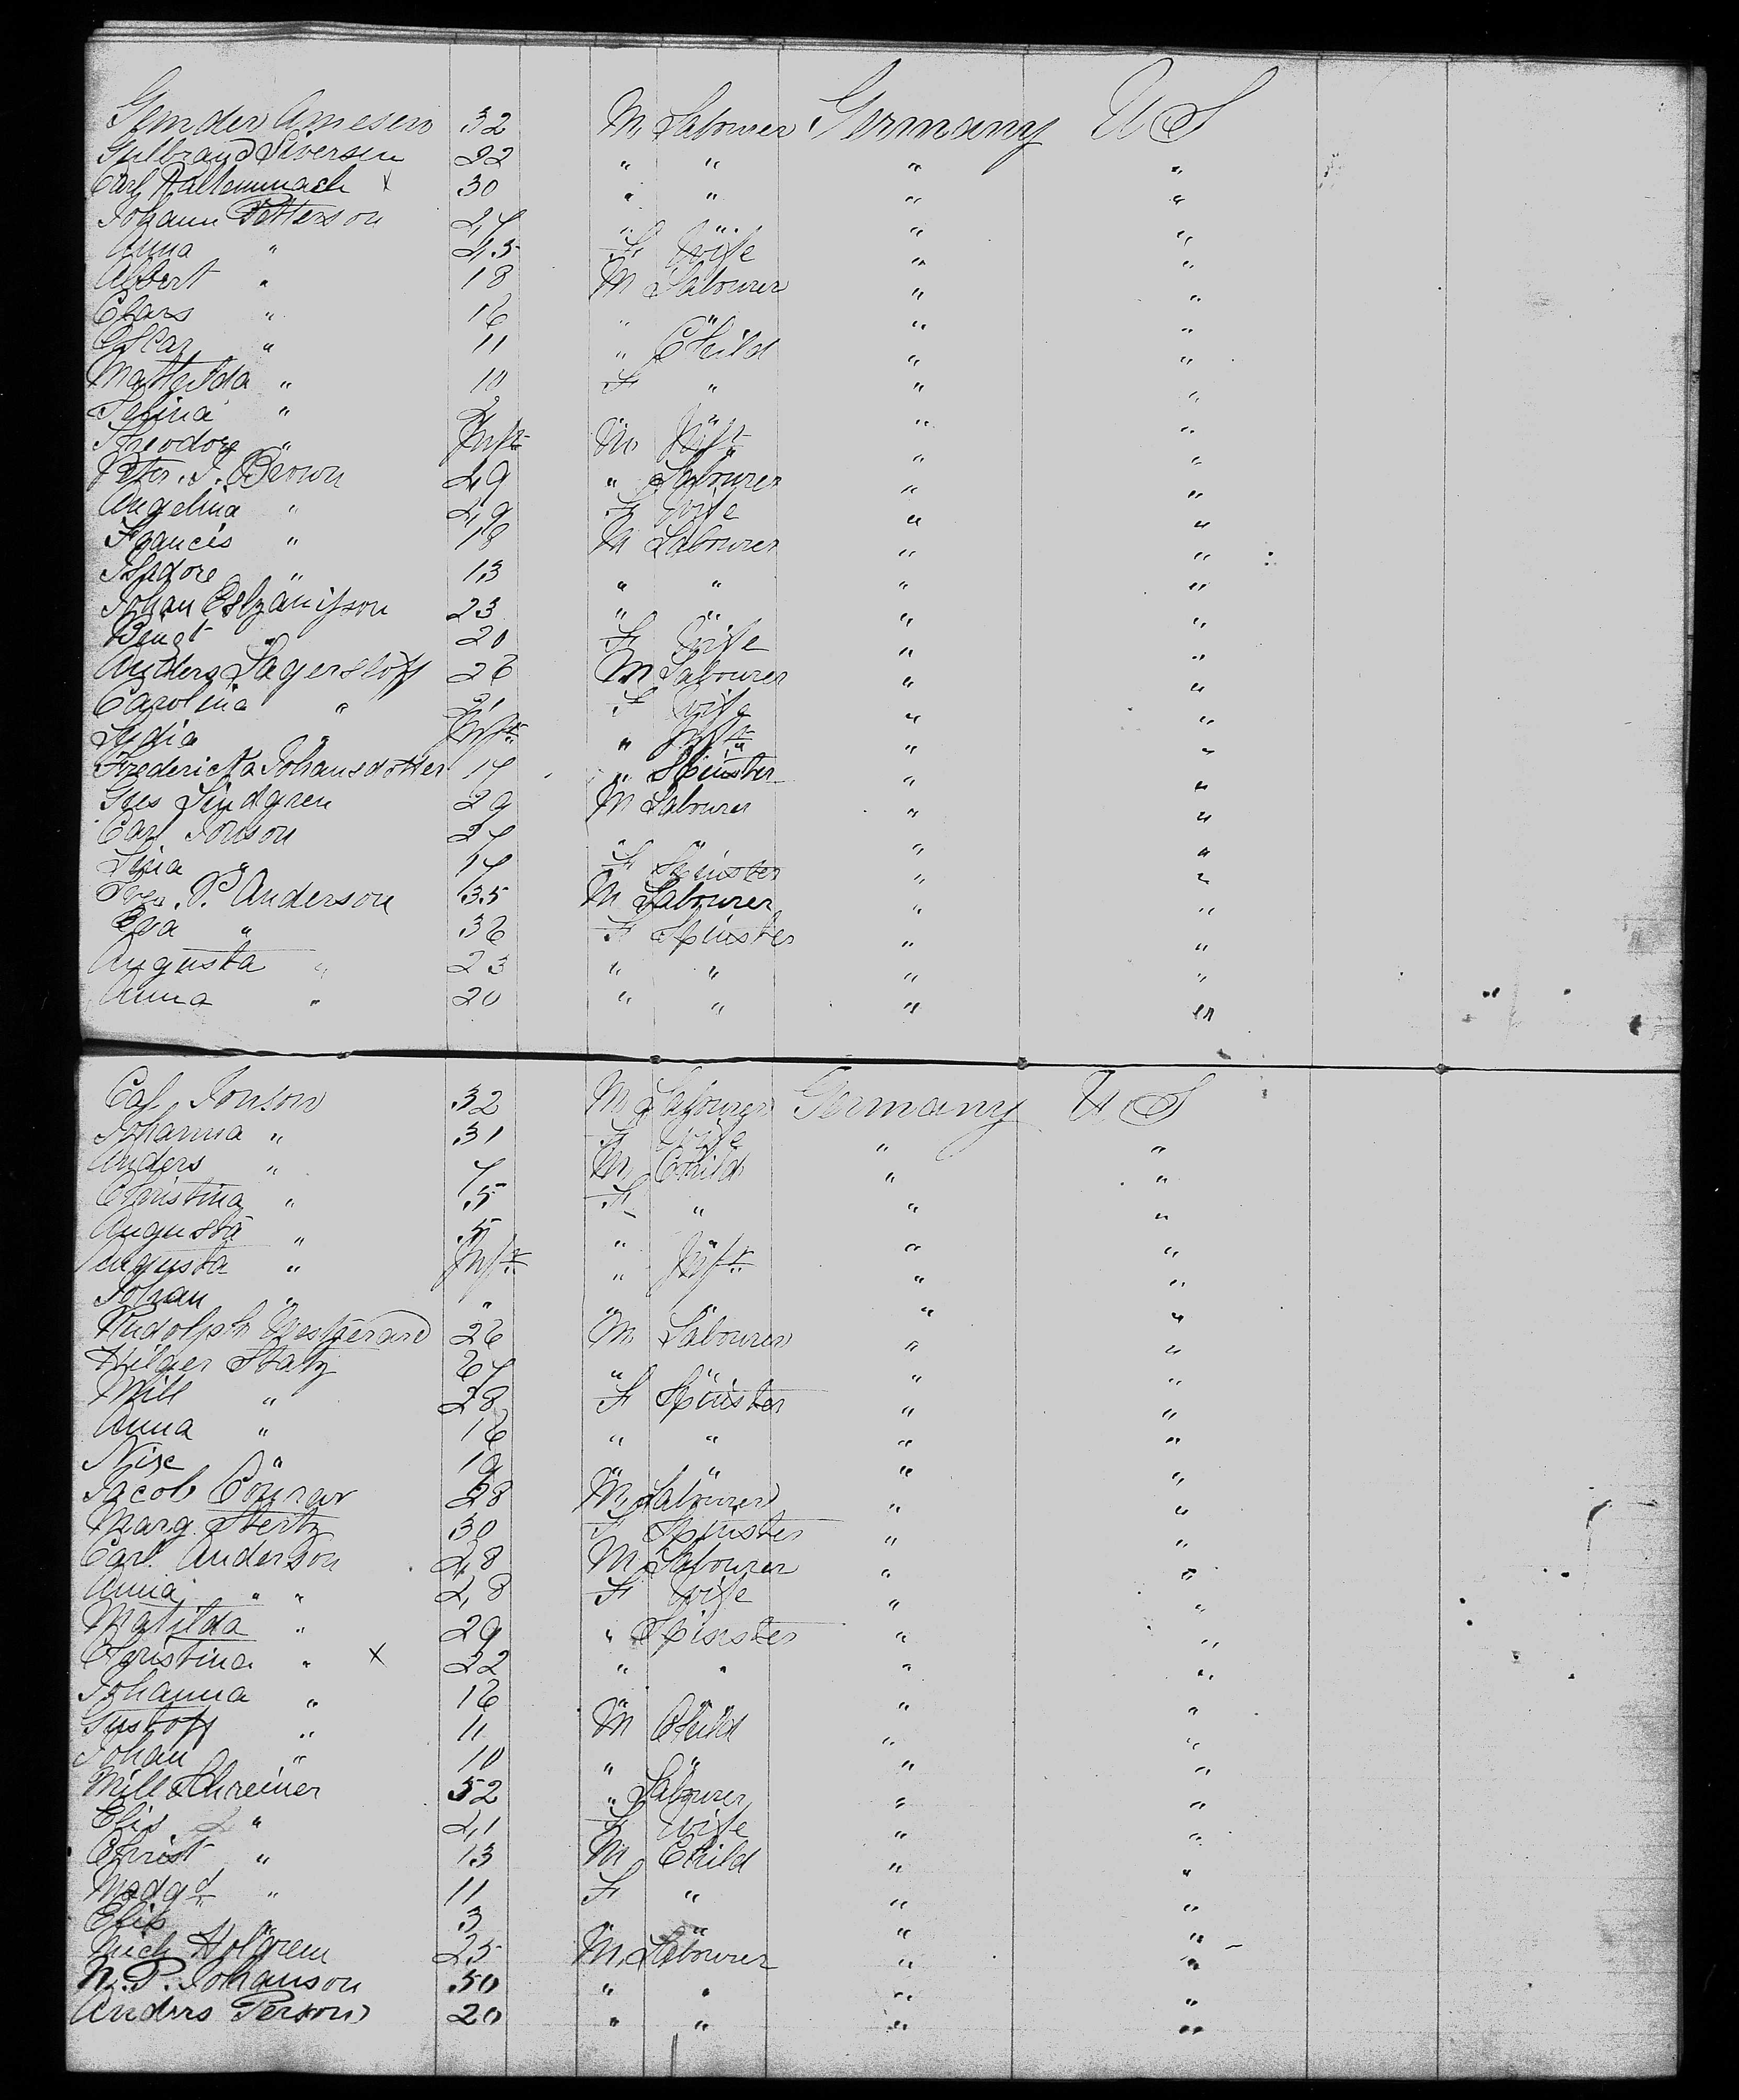 Gunder Arnesen 32 M Labourer Germany U S
Gulbrand Iversen 22 " " " "
Carl Kaltenmach x 30 " " " "
Johann Petterson 47 " " " "
Anna " 45 F Wife " "
Albert " 18 M Labourer " "
Clars " 16 " " " "
Oskar " 11 " Child " "
Mathilda " 10 F " " "
Selina " 2 " " " "
Theodore " Inft M Inft " "
Peter J. Brown 49 " Labourer " "
Angelina " 49 F Wife " "
Francis " 18 M Labourer " "
Isadore " 13 " " " "
Johan 23 " " " "
Bengt " 20 F Wife " "
Anders Lagerslöff 26 M Labourer " "
Carolina " 21 F Wife " "
Lydia " Inft " Inft " "
Fredericka Johansdotter 17 " Spinster " "
Gus Lindgren 29 M Labourer " "
Carl Jonson 27 " " " "
Lina " 17 F Spinster " "
Sven P. Anderson 35 M Labourer " "
Eva " 36 F Spinster " "
Augusta " 23 " " " "
Anna " 20 " " " "
Carl Jonson 32 M Labourer Germany U S
Johanna " 31 F Wife " "
Anders " 7 M Child " "
Christina " 5 F " " "
Augusta " 5 " " " "
Augusta " Inft " Inft " "
Johan " " " " " "
Rudolph 26 M Labourer " "
Hilger Statz 67 " " " "
Mill " 28 F Spinster " "
Anna " 16 " " " "
" 19 " " " "
Jacob 28 M Labourer " "
Marg. Stertz 30 F Spinster " "
Carl Anderson 48 M Labourer " "
Anna " " 48 F Wife " "
Matilda " 29 " Spinster " "
Christina " x 22 " " " "
Johanna " 16 " " " "
Gustoff " 11 M Child " "
Johan " 10 " " " "
Mill Schreiner 52 " Labourer " "
Elis " 41 F Wife " "
Christ " 13 M Child " "
Madgd " 11 F " " "
Elis " 3 " " " "
Mich Holgrem 25 M Labourer " "
N. P. Johanson 50 " " " "
Anders Person 20 " " " "